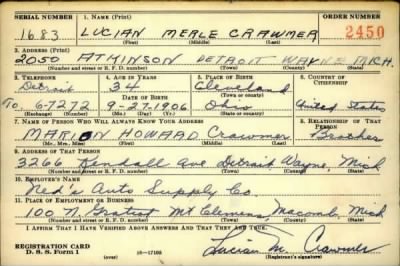 SERIAL NUMBER 1. NAME (Print) ORDER NUMBER
1683 LUCIAN MERLE CRAWMER 2450
(First) (Middle) (Last)
2. ADDRESS (Print)
2050 ATKINSON DETROIT WAYNE MICH.
(Number and street or R. F. D. number) (Town) (County) (State)
3. TELEPHONE 4. AGE IN YEARS 5. PLACE OF BIRTH 6. COUNTRY OF CITIZENSHIP
Detroit 34 Cleveland
DATE OF BIRTH (Town or county)
To. 6-7272 9-27-1906 Ohio United States
(Exchange) (Number) (Mo.) (Day) (Yr.) (State or country)
7. NAME OF PERSON WHO WILL ALWAYS KNOW YOUR ADDRESS 8. RELATIONSHIP OF THAT PERSON
MARION HOWARD Crawmer Brother
(Mr., Mrs., Miss) (First) (Middle) (Last)
9. ADDRESS OF THAT PERSON
3266 Kendall Ave Detroit, Wayne, Mich
(Number and street or R. F. D. number) (Town) (County) (State)
10. EMPLOYER'S NAME
Ned's Auto Supply Co
11. PLACE OF EMPLOYMENT OR BUSINESS
100 N. Gratiot Mt Clemens, Macomb, Mich
(Number and street or R. F. D. number) (Town) (County) (State)
I AFFIRM THAT I HAVE VERIFIED ABOVE ANSWERS AND THAT THEY ARE TRUE.
REGISTRATION CARD
D. S. S. Form 1 (over) 16—17105 Lucian M. Crawmer
(Registrant's signature)